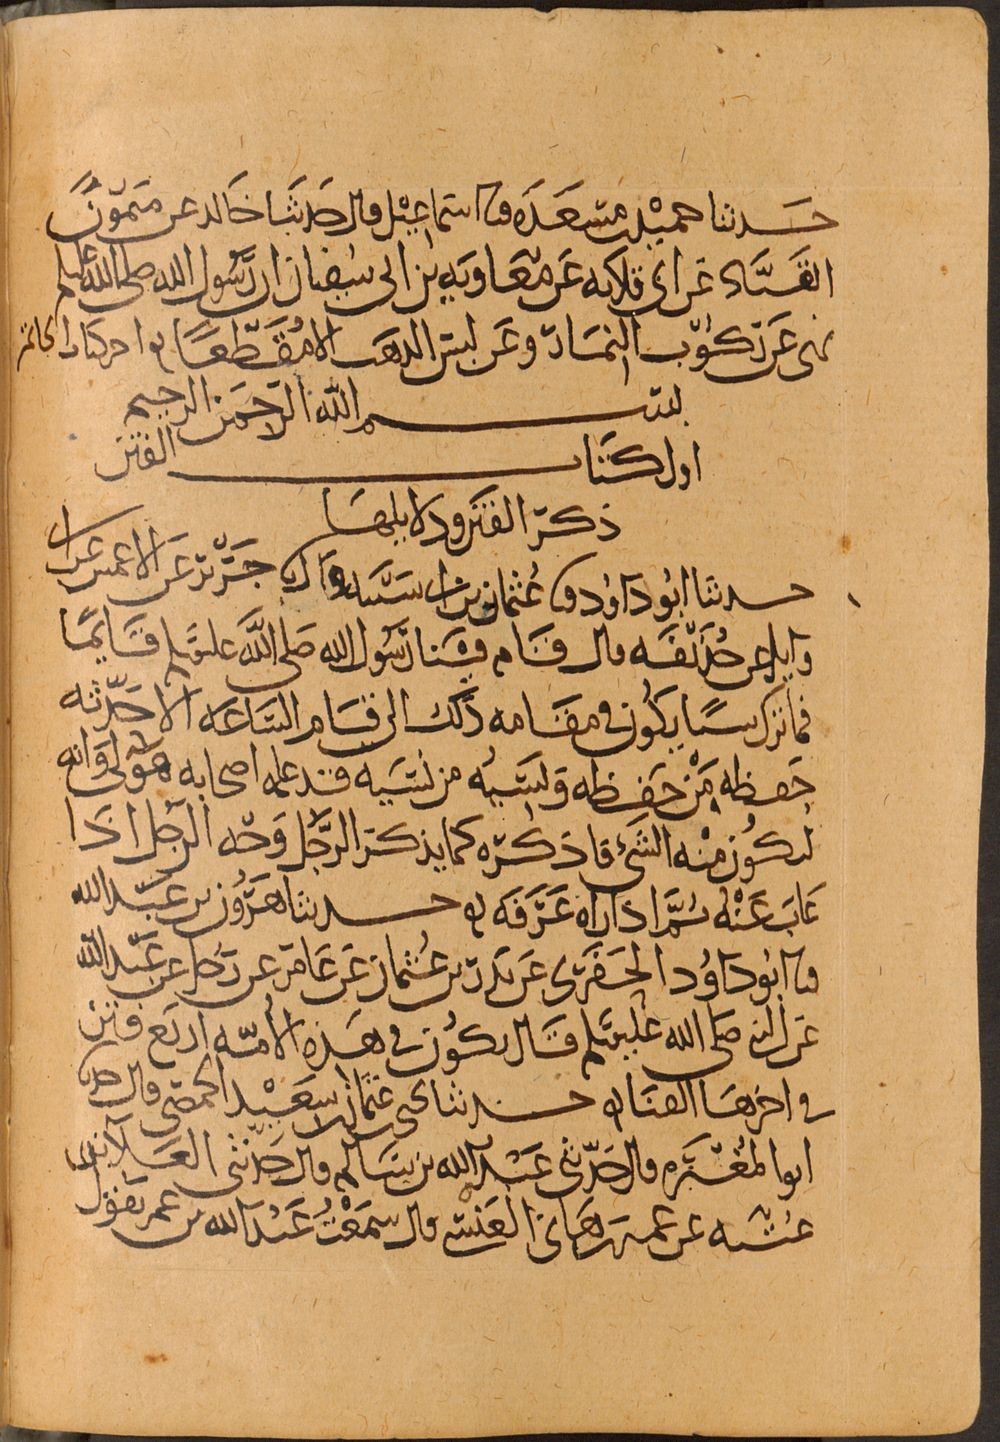 حدثنا حميد بن مسعدة قثا اسماعيل قال حدثنا خالد عن ميمون
القناد عن ابى قلابه عن معاويه بن ابى سفيان ان رسول الله صلى الله عليه وسلم
نهى عن ركوب النمار وعن لبس الذهب الا مقطعا اخر كتاب الخاتم
بسم الله الرحمن الرحيم
اول كتاب الفتن
ذكر الفتن ودلايلها
حدثنا ابو داود قثا عثمان بن ابى شيبه قال جرير عن الاعمش عن ابى
وايل عن حذيفه قال قام فينا رسول الله صلى الله عليه وسلم قايما
فما ترك شيا يكون فى مقامه ذلك الى قيام الساعه الا حدثه
حفظه من حفظه ونسيه من نسيه قد علمه اصحابه هولى وانه
ليكون منه الشئ فاذكره كما يذكر الرجل وجه الرجل اذا
غاب عنه ثم اذا راه عرفه حدثنا هرون بن عبد الله
قثا ابو داود الحفرى عن بدر بن عثمان عن عامر عن رجل عن عبد الله
عن النبى صلى الله عليه وسلم قال يكون فى هذه الامه اربع فتن
فى اخرها الفنا حدثنا يحيى بن عثمان بن سعيد الحمصى قال حدثنا
ابوا المغيره قال حدثنى عبد الله بن سالم قال حدثنى العلا بن
عتبه عن عمير بن هانئ العنسى قال سمعت عبد الله بن عمر يقول